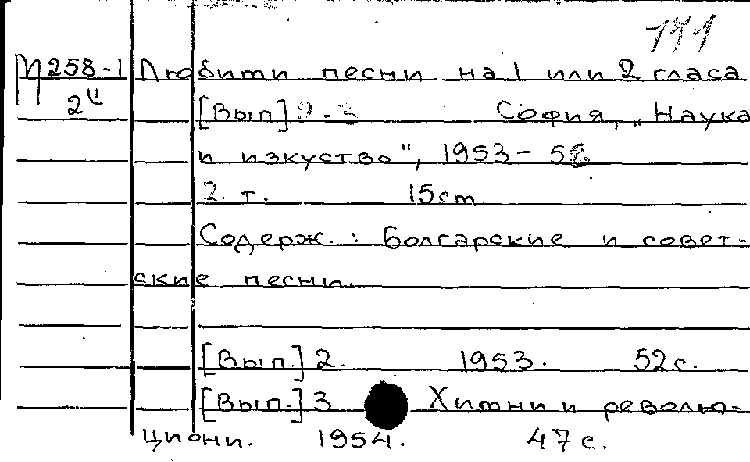 191
М258-1 Любити песни на 1 или 2 гласа
2ц [Вып] 2-3 София, „Наука
и изкуство", 1953-54
2 т. 15cm
Содерж.: Болгарские и совет-
ские песни.
[Вып.] 2. 1953. 52с.
[Вып.] 3 Химни и револю-
циони. 1954. 47с.